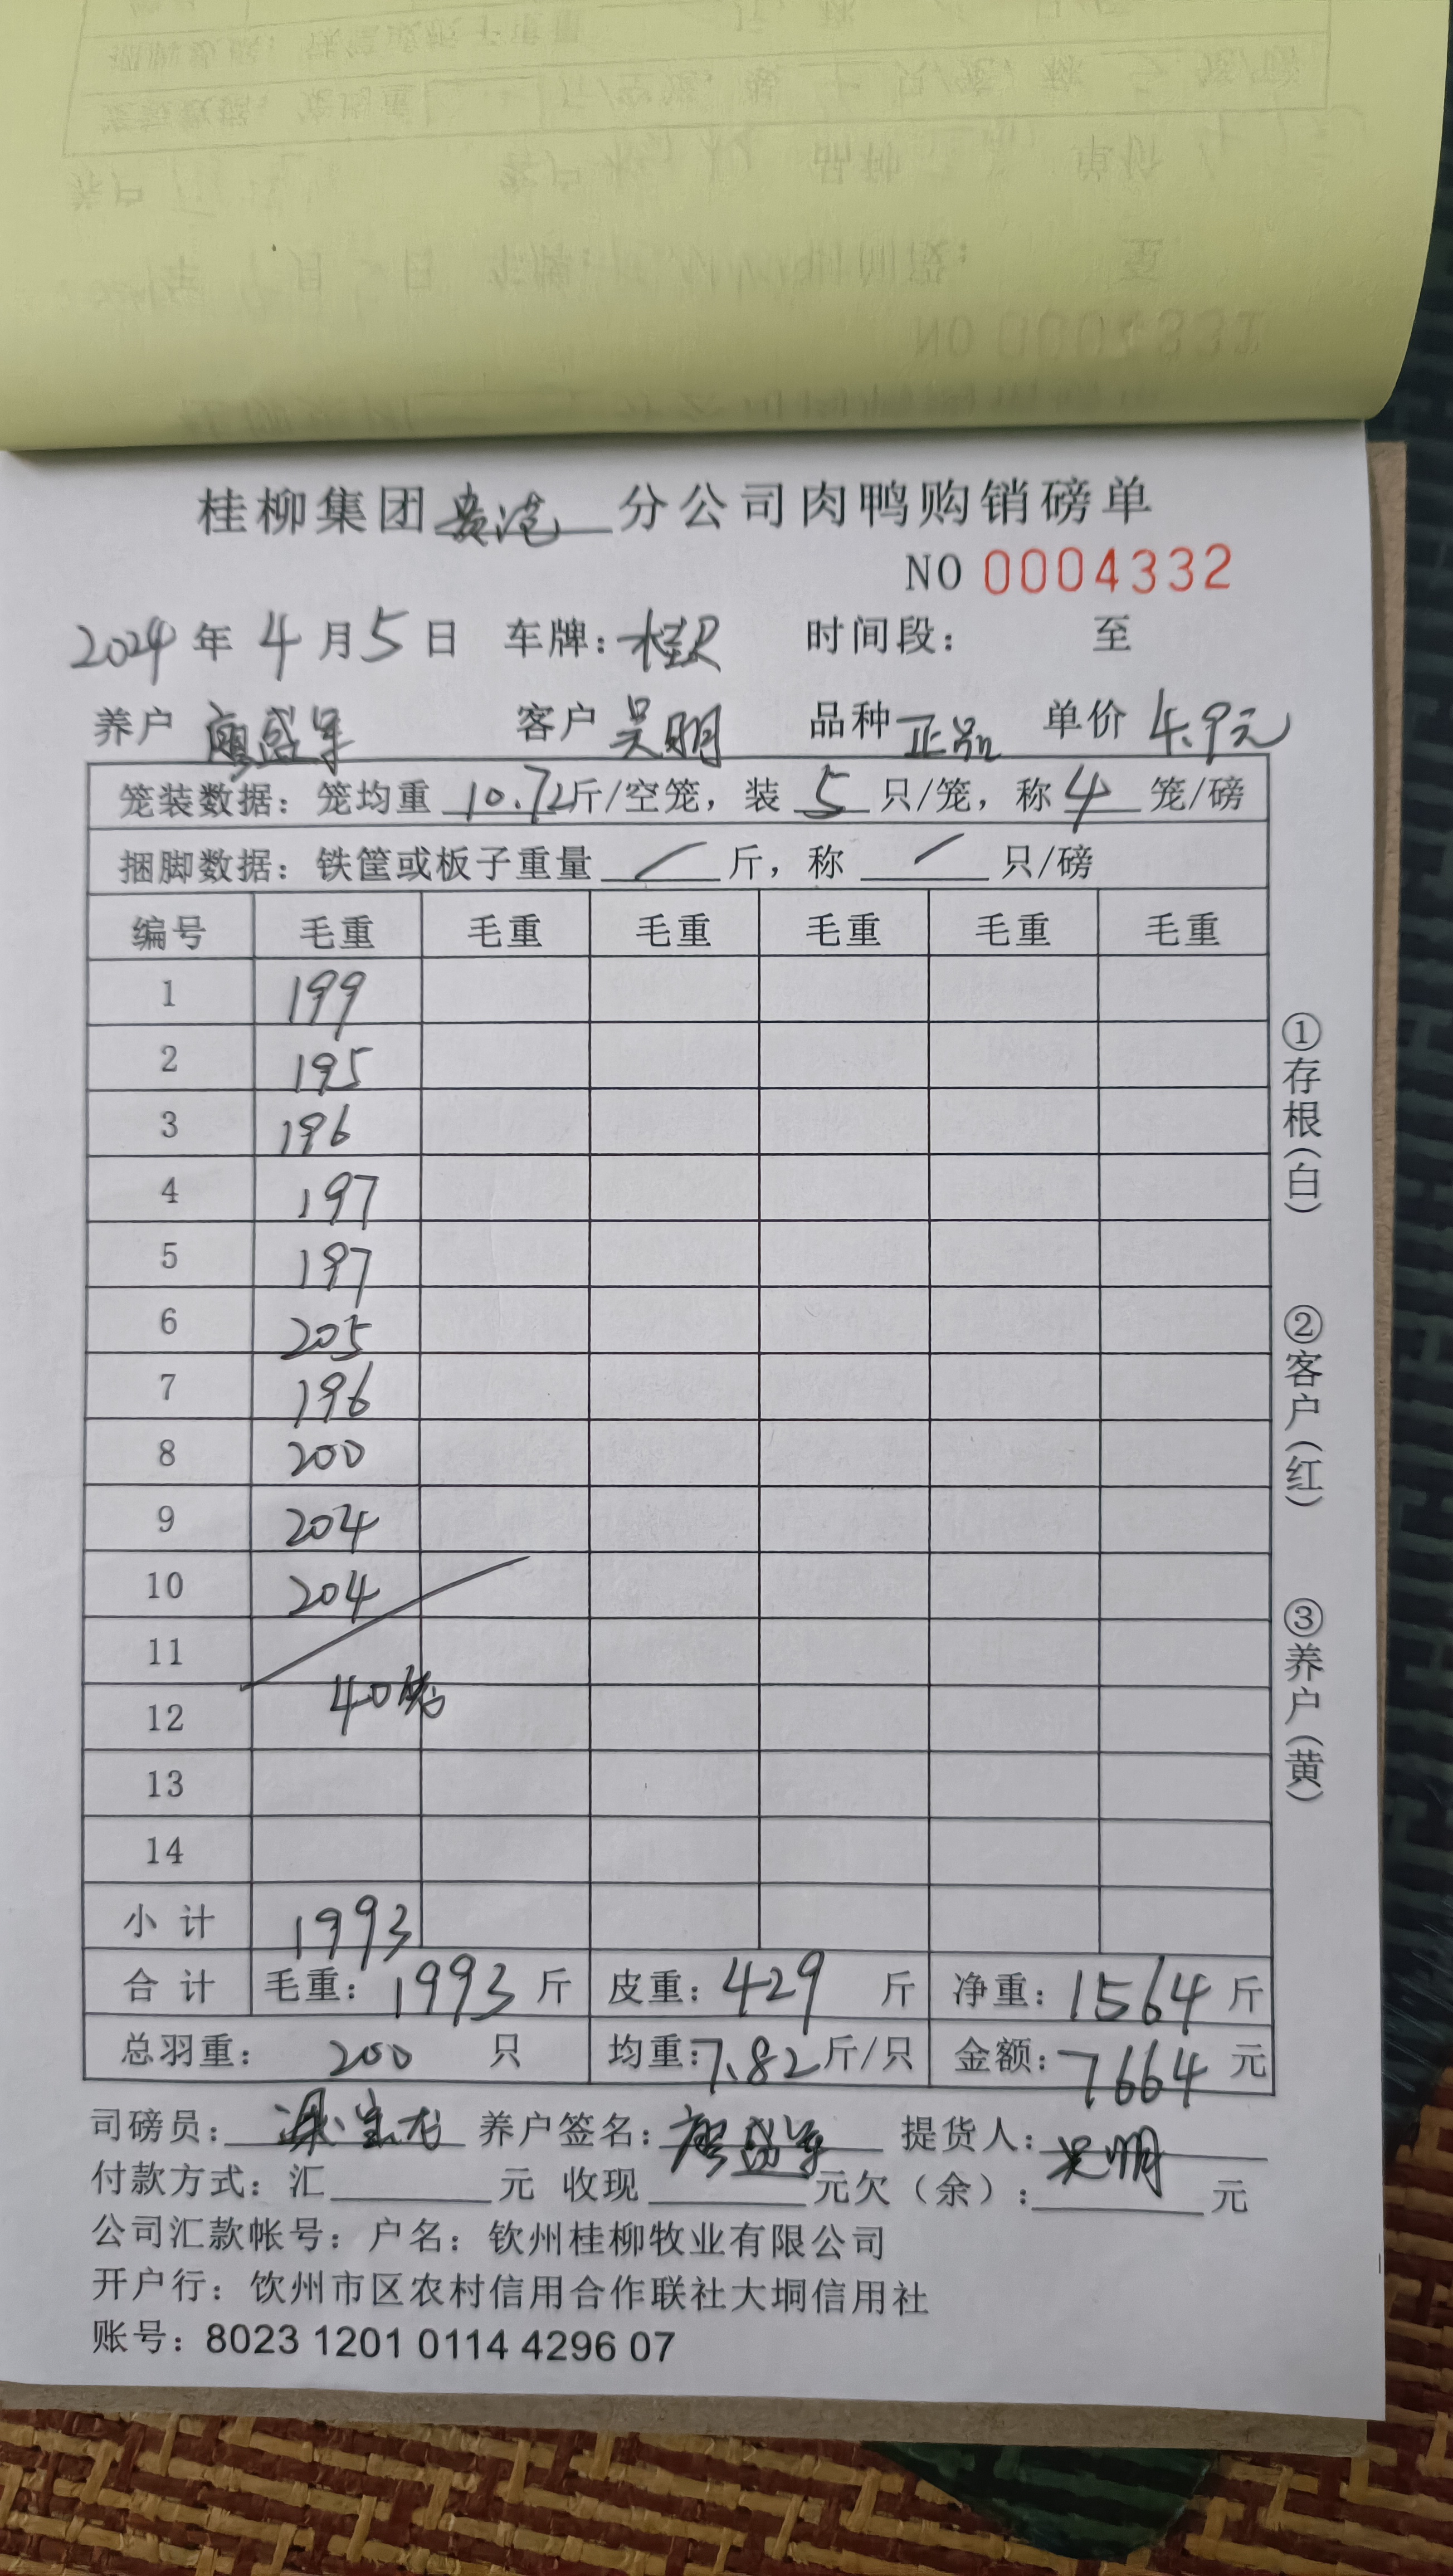 桂柳集团贵港分公司肉鸭购销磅单
NO 0004332
2024年4月5日 车牌：桂R 时间段： 至
养户 廖盛军 客户 吴明 品种 正品 单价 4.9元
笼装数据：笼均重 10.72斤/空笼，装 5 只/笼，称 4 笼/磅
捆脚数据：铁筐或板子重量 / 斤，称 / 只/磅
编号 毛重 毛重 毛重 毛重 毛重 毛重
1 199
2 195
3 196
4 197
5 197
6 205
7 196
8 200
9 204
10 204
11
12 40笼
13
14
小计 1993
合计 毛重：1993斤 皮重：429斤 净重：1564斤
总羽重：200只 均重：7.82斤/只 金额：7664元
司磅员： 养户签名：廖盛军 提货人：吴明
付款方式：汇 元 收现 元欠（余）： 元
公司汇款帐号：户名：钦州桂柳牧业有限公司
开户行：饮州市区农村信用合作联社大垌信用社
账号：8023 1201 0114 4296 07
①存根（白）
②客户（红）
③养户（黄）